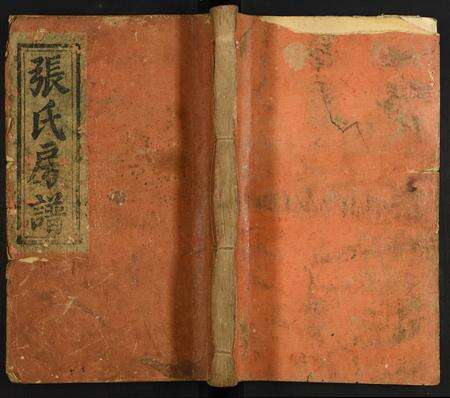 張氏房譜